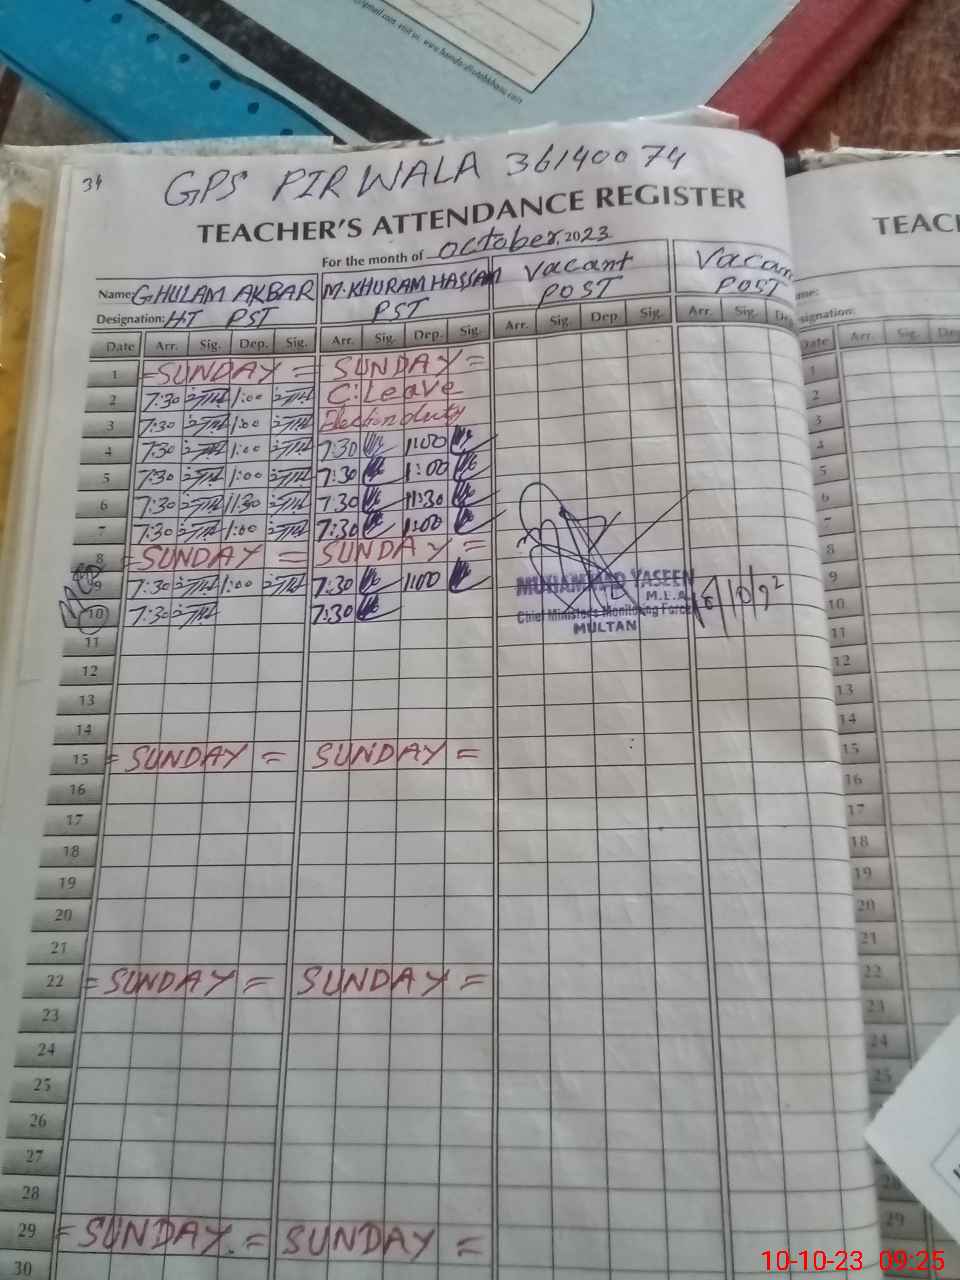 34
GPS PIRWALA 36140074
TEACHER'S ATTENDANCE REGISTER
For the month of October, 2023
Name: GHULAM AKBAR M. KHURAM HASSAN Vacant Vacan
Designation: H.T PST PST POST POST
Date Arr. Sig. Dep. Sig. Arr. Sig. Dep. Sig. Arr. Sig. Dep. Sig. Arr. Sig. De
1 =SUNDAY = SUNDAY =
2 7:30 1:00 C:Leave
3 7:30 1:00 Election duty
4 7:30 1:00 7:30 1:00
5 7:30 1:00 7:30 1:00
6 7:30 11:30 7:30 11:30
7 7:30 1:00 7:30 1:00
8 = SUNDAY = SUNDAY =
9 7:30 1:00 7:30 1:00
10 7:30 7:30
MUHAMMAD YASEEN
M.E.A
Chief Minister's Monitoring Force
MULTAN
11
12
13
14
15 = SUNDAY = SUNDAY =
16
17
18
19
20
21
22 = SUNDAY = SUNDAY =
23
24
25
26
27
28
29 = SUNDAY. = SUNDAY =
30
TEAC
ame:
signation:
Date Arr. Sig. Dep
1
2
3
4
5
6
7
8
9
10
11
12
13
14
15
16
17
18
19
20
21
22
23
24
25
29
10-10-23 09:25